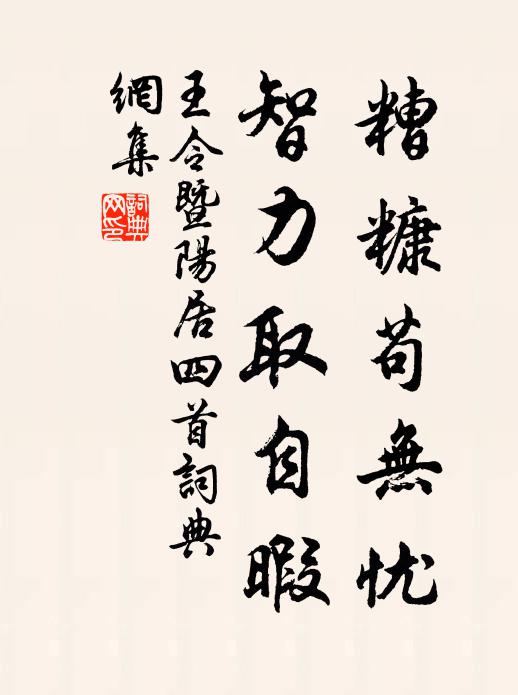 糟糠苟無忧
智力取自暇
王令暨陽居四首詞典
網集
詞典
网印